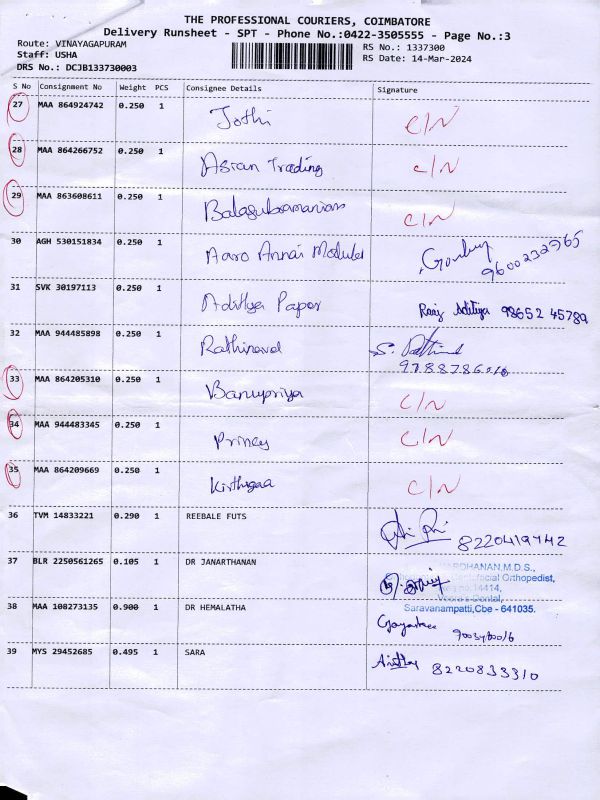 THE PROFESSIONAL COURIERS, COIMBATORE
Delivery Runsheet - SPT - Phone No.:0422-3505555 - Page No.:3
Route: VINAYAGAPURAM RS No.: 1337300
Staff: USHA RS Date: 14-Mar-2024
DRS No.: DCJB133730003
S No Consignment No Weight PCS Consignee Details Signature
27 MAA 864924742 0.250 1 Jothi C/N
28 MAA 864266752 0.250 1 Asian Trading C/N
29 MAA 863608611 0.250 1 Balasubramaniam C/N
30 AGH 530151834 0.250 1 Aaro Annai Modules 9600232765
31 SVK 30197113 0.250 1 Adithya Paper Raaj Aditiya 98652 45789
32 MAA 944485898 0.250 1 Rathinavel S.
33 MAA 864205310 0.250 1 Banupriya C/N
34 MAA 944483345 0.250 1 Princy C/N
35 MAA 864209669 0.250 1 Kirthigaa C/N
36 TVM 14833221 0.290 1 REEBALE FUTS 8220419742
37 BLR 2250561265 0.105 1 DR JANARTHANAN
M.D.S.,
Orthopedist,
14414,
Dental,
Saravanampatti,Cbe - 641035.
38 MAA 108273135 0.900 1 DR HEMALATHA
39 MYS 29452685 0.495 1 SARA 8220833310